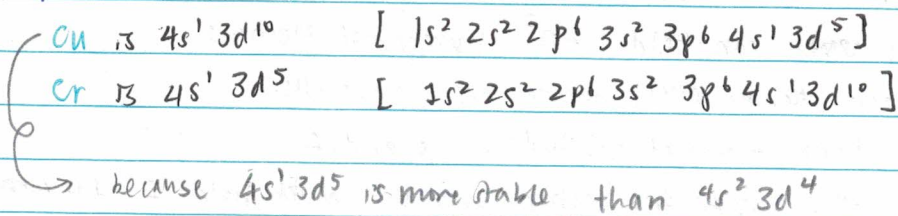 Cu is 4s¹ 3d¹⁰ [ 1s² 2s² 2p⁶ 3s² 3p⁶ 4s¹ 3d⁵ ]
Cr is 4s¹ 3d⁵ [ 1s² 2s² 2p⁶ 3s² 3p⁶ 4s¹ 3d¹⁰ ]
→ because 4s¹ 3d⁵ is more stable than 4s² 3d⁴